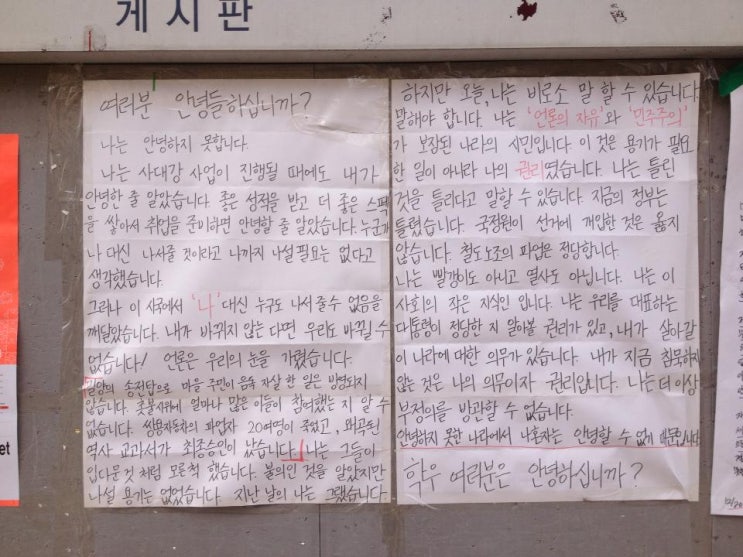 게시판
여러분 안녕들하십니까?
나는 안녕하지 못합니다.
나는 사대강 사업이 진행될 때에도 내가
안녕한 줄 알았습니다. 좋은 성적을 받고 더 좋은 스펙
을 쌓아서 취업을 준비하면 안녕할 줄 알았습니다. 누군가
나 대신 나서줄 것이라고 나까지 나설 필요는 없다고
생각했습니다.
그러나 이 사회에서 '나' 대신 누구도 나서 줄 수 없음을
깨달았습니다. 내가 바뀌지 않는 다면 우리도 바뀔 수
없습니다! 언론은 우리의 눈을 가렸습니다.
밀양의 송전탑으로 마을 주민이 음독 자살 한 일은 방영되지
않습니다. 촛불시위에 얼마나 많은 이들이 참여했는 지 알 수
없습니다. 쌍용자동차의 파업자 20여명이 죽었고, 왜곡된
역사 교과서가 최종승인이 났습니다. 나는 그들이
입다문 것 처럼 모른척 했습니다. 불의인 것을 알았지만
나설 용기는 없었습니다. 지난 날의 나는 그랬습니다
하지만 오늘, 나는 비로소 말 할 수 있습니다
말해야 합니다. 나는 '언론의 자유'와 '민주주의'
가 보장된 나라의 시민입니다. 이 것은 용기가 필요
한 일이 아니라 나의 권리였습니다. 나는 틀린
것을 틀리다고 말할 수 있습니다. 지금의 정부는
틀렸습니다. 국정원이 선거에 개입한 것은 옳지
않습니다. 철도노조의 파업은 정당합니다.
나는 빨갱이도 아니고 열사도 아닙니다. 나는 이
사회의 작은 지식인 입니다. 나는 우리를 대표하는
대통령이 정당한 지 알아볼 권리가 있고, 내가 살아갈
이 나라에 대한 의무가 있습니다. 내가 지금 침묵하지
않는 것은 나의 의무이자 권리입니다. 나는 더 이상
부정의를 방관할 수 없습니다.
안녕하지 못한 나라에서 나혼자는 안녕할 수 없기 때문입니다
학우 여러분은 안녕하십니까?